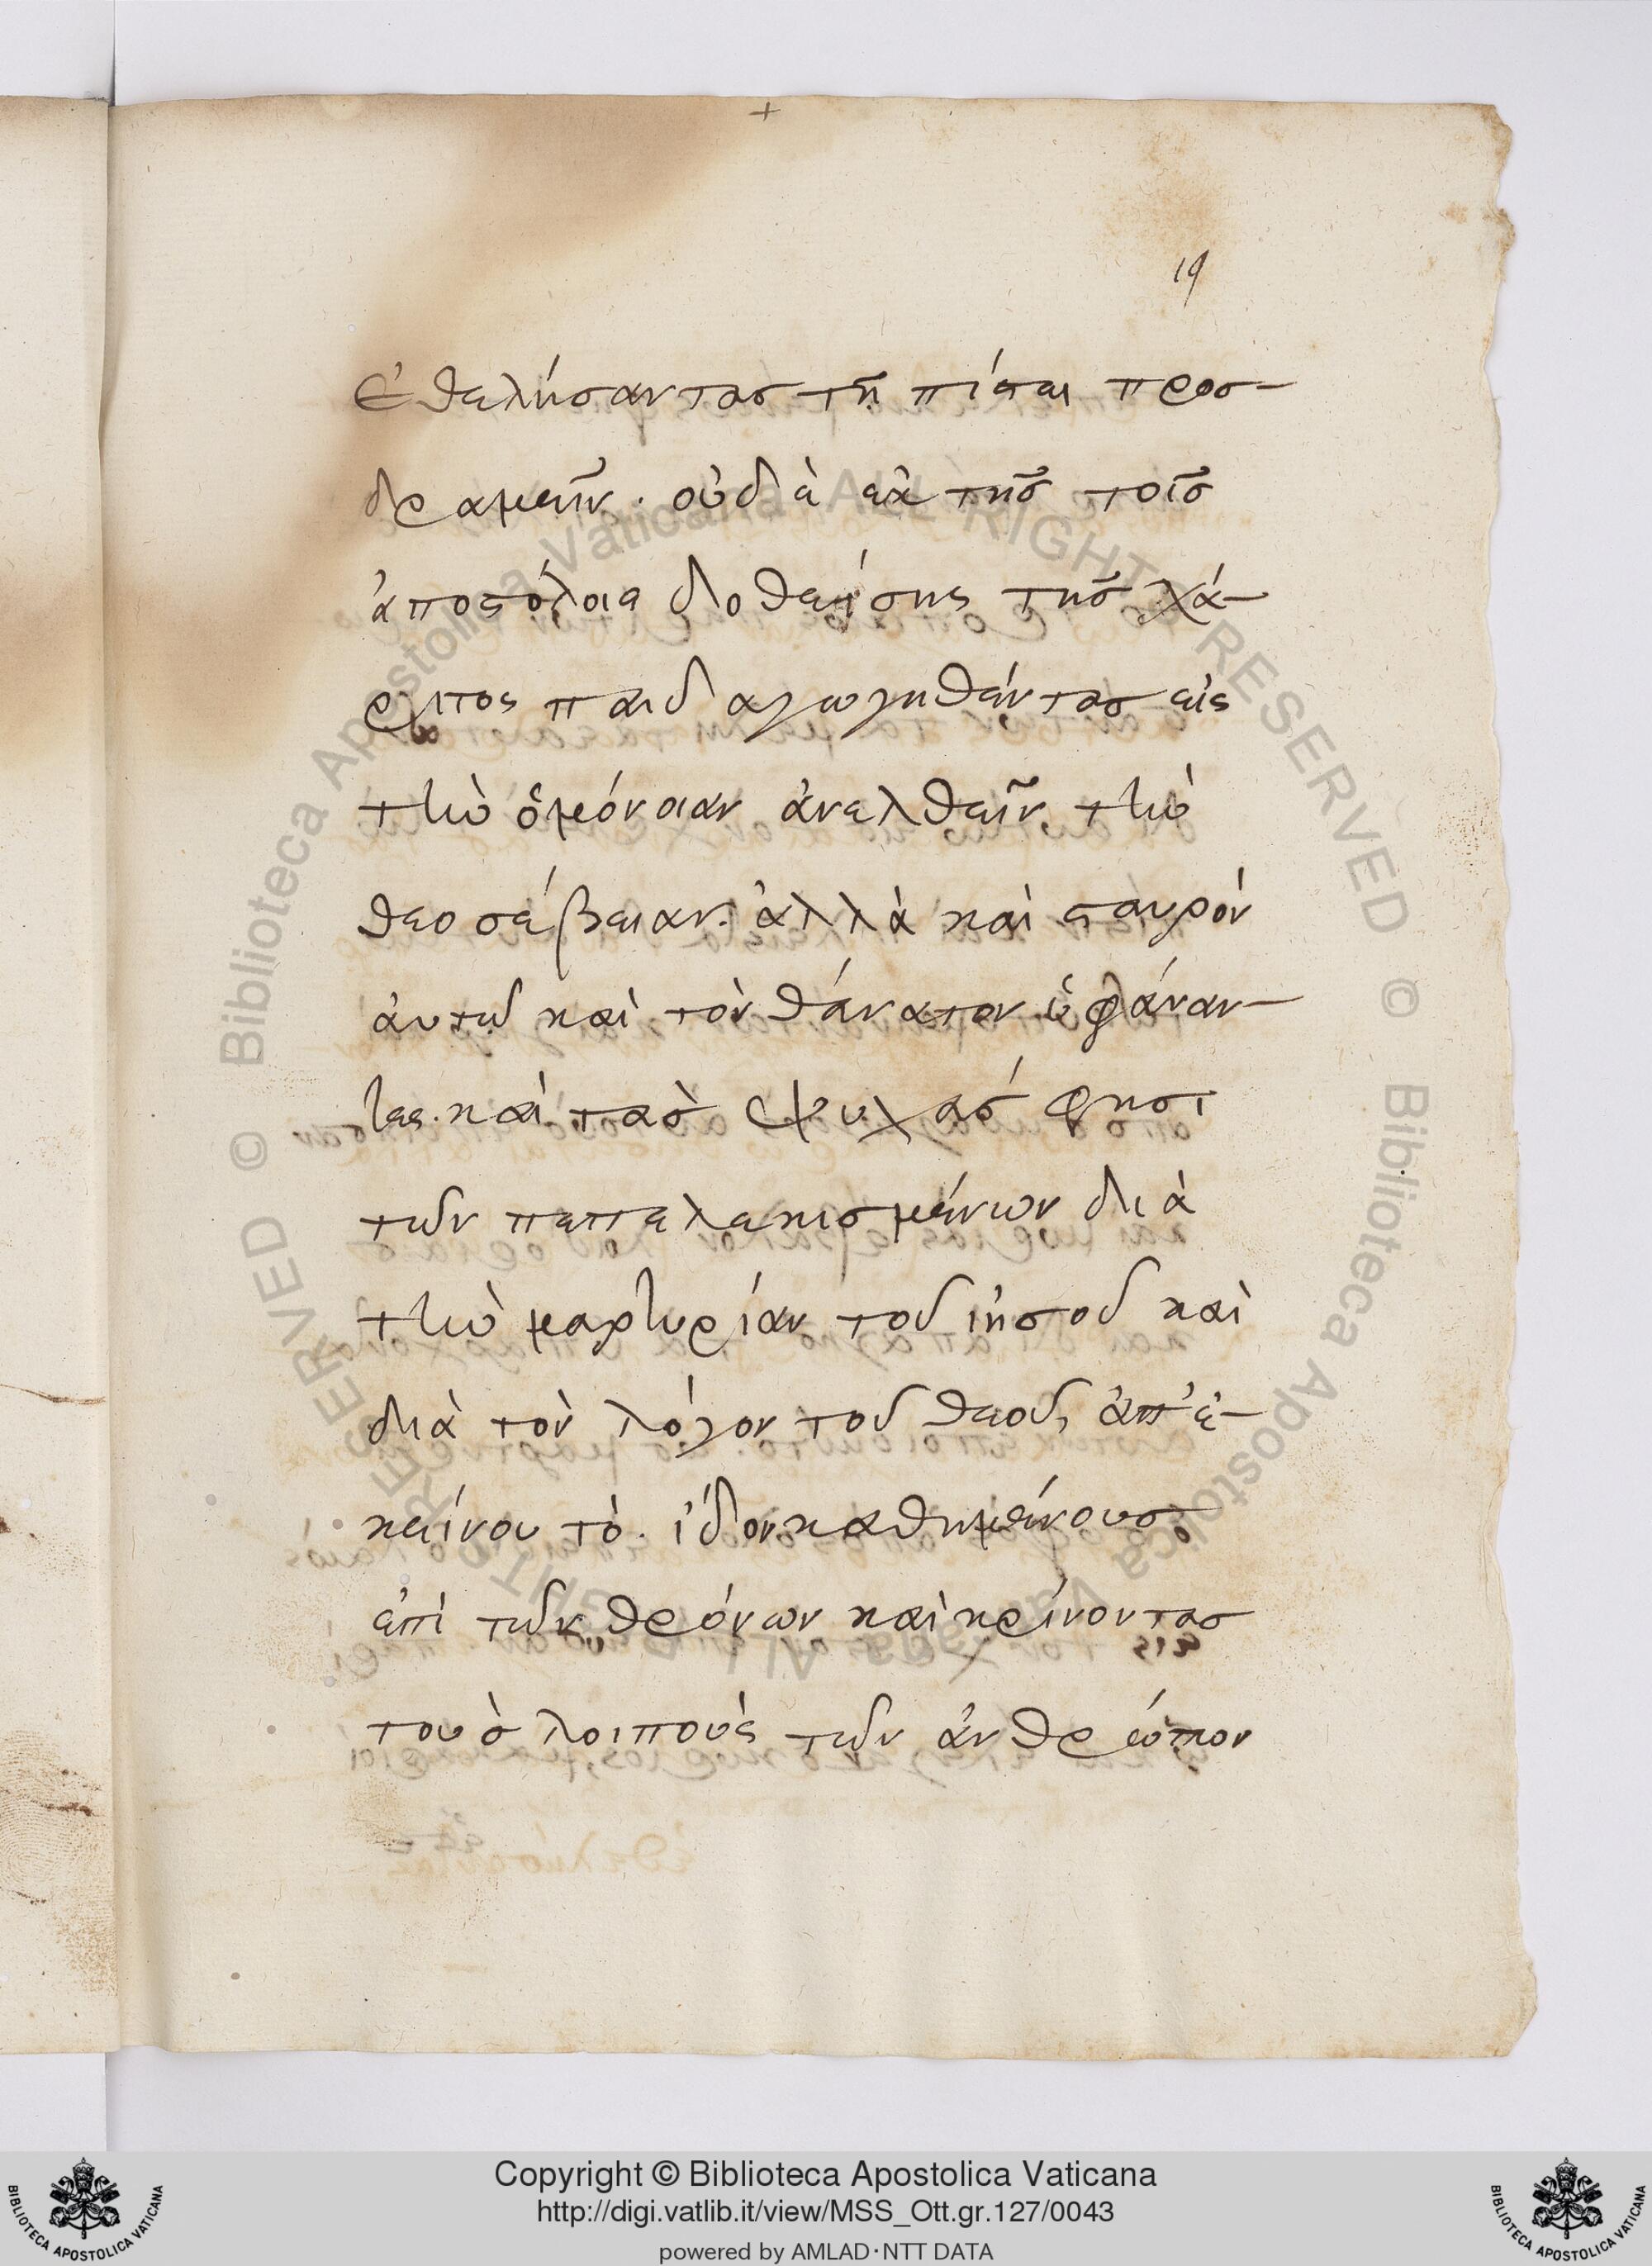 19
ἐθελήσαντας τῇ πίστει προσ-
δραμεῖν. οὐδὲ ἐκ τῆς τοῖς
ἀποστόλοις δοθείσης τῆς χά-
ριτος παιδαγωγηθέντας εἰς
τὴν ὁμόνοιαν ἀνελθεῖν τὴν
θεοσέβειαν. ἀλλὰ καὶ σταυρόν
ἀυτῶ καὶ τὸν θάνατον
τες. καὶ τὰς ψυχάς φησι
τῶν πεπελεκισμένων διὰ
τὴν μαρτυρίαν τοῦ ἰησοῦ καὶ
διὰ τὸν λόγον τοῦ θεοῦ, ἀπ' ἐ-
κείνου τὸ. ἰδον καθημένους
ἐπὶ τῶν θρόνων καὶ κρίνοντας
τοὺς λοιποὺς τῶν ἀνθρώπον
© Biblioteca Apostolica Vaticana ALL RIGHTS RESERVED
© Biblioteca Apostolica Vaticana ALL RIGHTS RESERVED
Copyright © Biblioteca Apostolica Vaticana
http://digi.vatlib.it/view/MSS_Ott.gr.127/0043
powered by AMLAD·NTT DATA
BIBLIOTECA APOSTOLICA VATICANA
BIBLIOTECA APOSTOLICA VATICANA